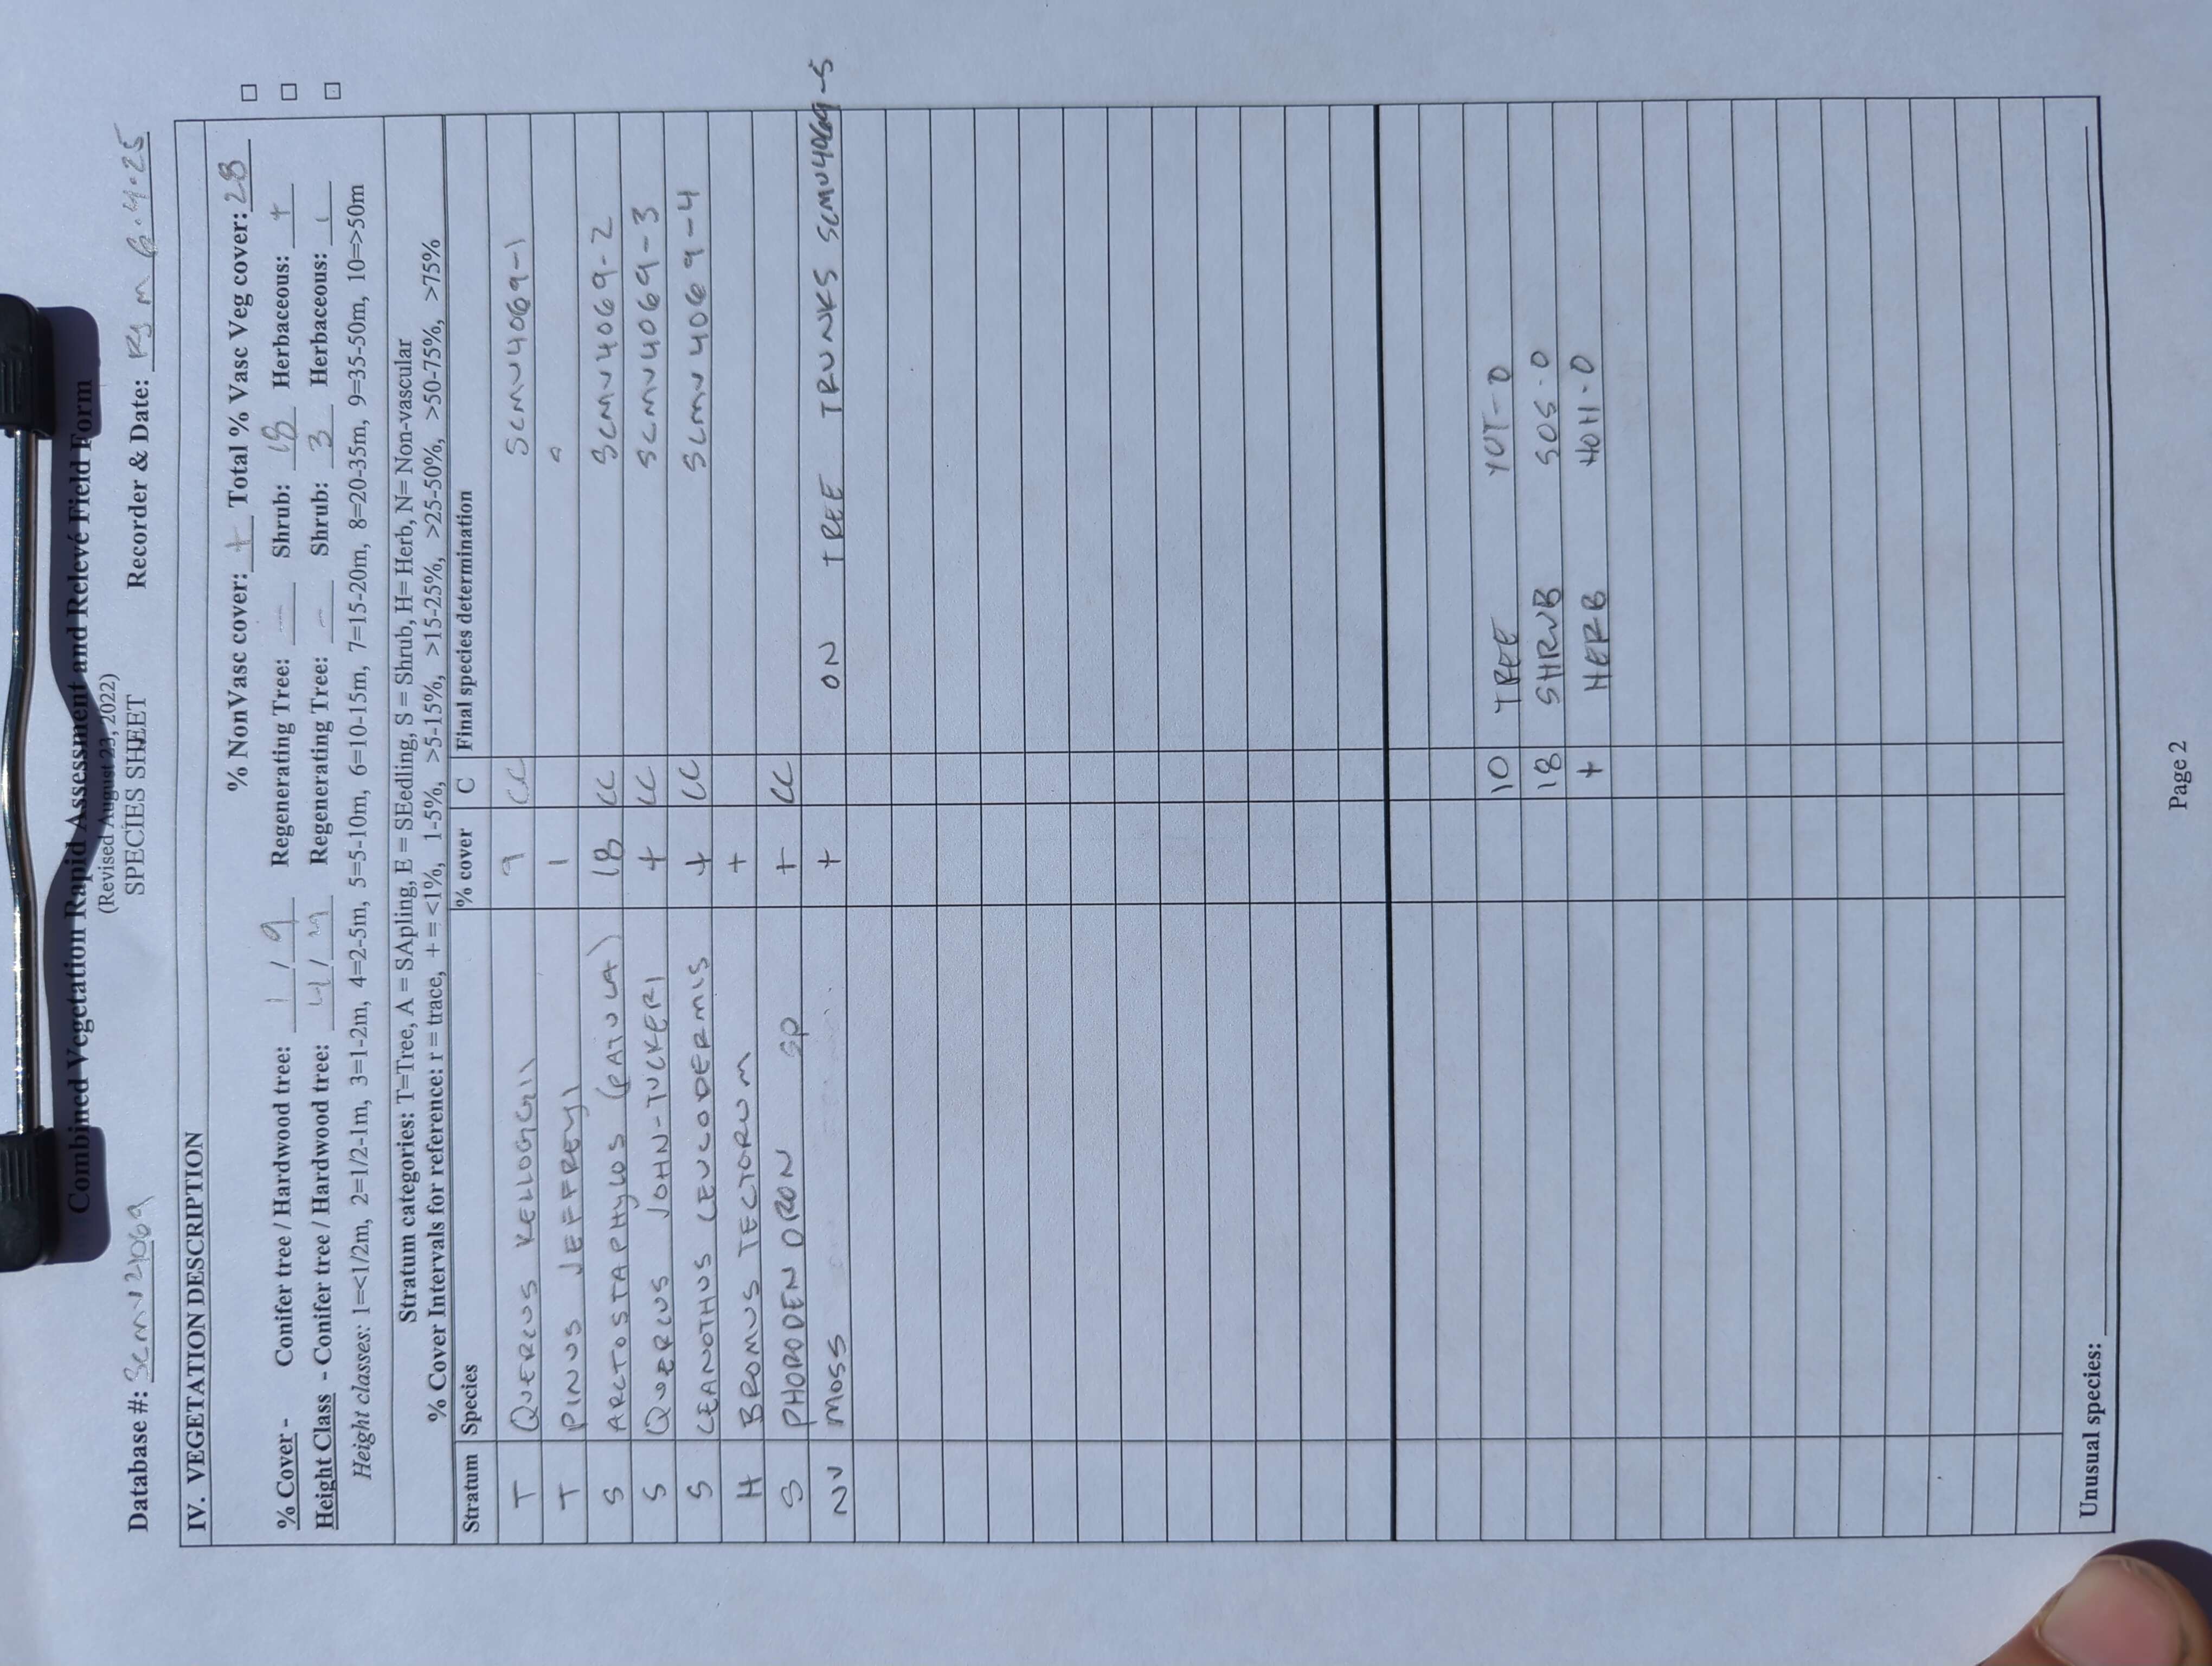 Combined Vegetation Rapid Assessment and Relevé Field Form
(Revised August 23, 2022)
SPECIES SHEET
Database #: SCMV4069 Recorder & Date: 6.4.25
IV. VEGETATION DESCRIPTION
% NonVasc cover: + Total % Vasc Veg cover: 28
% Cover - Conifer tree / Hardwood tree: 1 / 9 Regenerating Tree: — Shrub: 18 Herbaceous: + □
Height Class - Conifer tree / Hardwood tree: 4 / Regenerating Tree: — Shrub: 3 Herbaceous: 1 □
Height classes: 1=<1/2m, 2=1/2-1m, 3=1-2m, 4=2-5m, 5=5-10m, 6=10-15m, 7=15-20m, 8=20-35m, 9=35-50m, 10=>50m
Stratum categories: T=Tree, A = SApling, E = SEedling, S = Shrub, H= Herb, N= Non-vascular
% Cover Intervals for reference: r = trace, + = <1%, 1-5%, >5-15%, >15-25%, >25-50%, >50-75%, >75%
Stratum Species % cover C Final species determination
T QUERCUS KELLOGGII 9 CC SCMV4069-1
T PINUS JEFFREYI 1
S ARCTOSTAPHYLOS (PATULA) 18 CC SCMV4069-2
S QUERCUS JOHN-TUCKERI + CC SCMV4069-3
S CEANOTHUS LEUCODERMIS + CC SCMV4069-4
H BROMUS TECTORUM +
S PHORODENDRON SP + CC
NV MOSS + ON TREE TRUNKS SCMV4069-5
10 TREE YOT-0
18 SHRUB SOS-0
+ HERB HOH-0
Unusual species:
Page 2